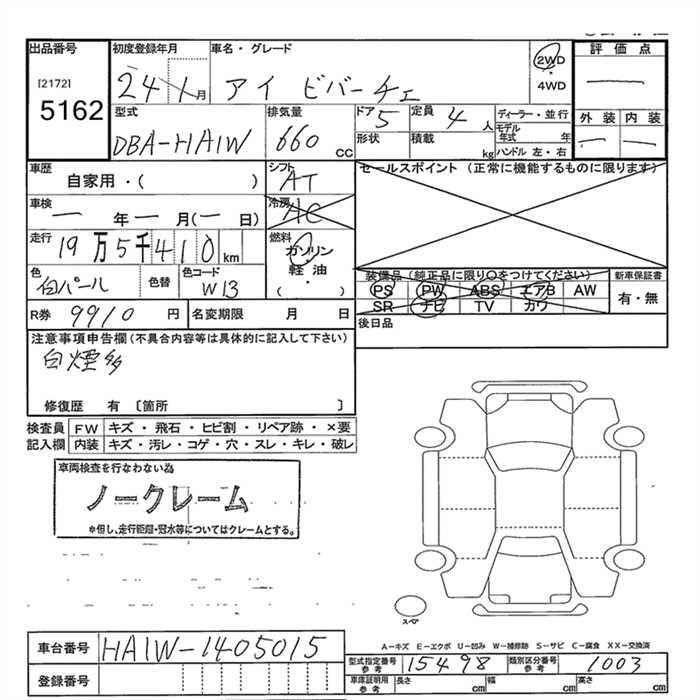 出品番号 初度登録年月 車名・グレード 評価点
[2172] 24年1月 アイ ビバーチェ 2WD・4WD
5162
型式 DBA-HA1W 排気量 660 CC ドア 5 定員 4人 ディーラー・並行 外装 内装
形状 積載 kg モデル年式 年 ハンドル 左・右
車歴 自家用・( ) シフト AT セールスポイント (正常に機能するものに限ります)
車検 一年一月(一日) 冷房 AC
走行 19万5千410km 燃料 ガソリン
軽油
( )
色 白パール 色替 色コード W13
装備品(純正品に限り○をつけてください) 新車保証書
PS PW ABS エアB AW 有・無
SR ナビ TV カワ
R券 9910円 名変期限 月 日 後日品
注意事項申告欄(不具合内容等は具体的に記入して下さい)
白煙多
修復歴 有〔箇所 〕
検査員 FW キズ・飛石・ヒビ割・リペア跡・×要
記入欄 内装 キズ・汚レ・コゲ・穴・スレ・キレ・破レ
車両検査を行なわない為
ノークレーム
*但し、走行距離・冠水等についてはクレームとする。
スペア
A−キズ E−エクボ U−凹み W−補修跡 S−サビ C−腐食 XX−交換済
車台番号 HA1W-1405015 型式指定番号 参考 15498 類別区分番号 参考 1003
登録番号 車庫証明用 参考 長さ cm 幅 cm 高さ cm